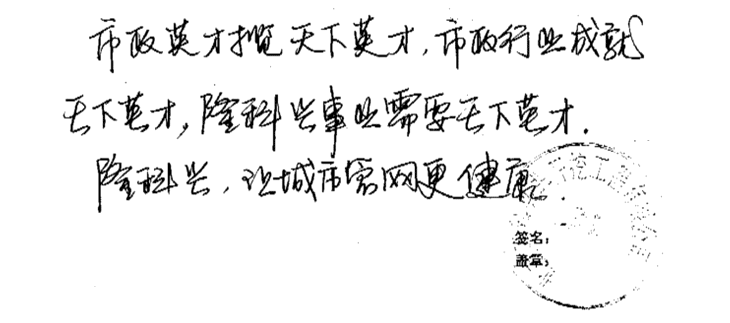 市政英才揽天下英才，市政行业成就
天下英才，隆科兴事业需要天下英才.
隆科兴，让城市管网更健康.
签名：
盖章：